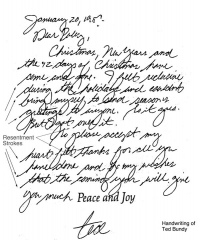 January 20, 198
Dear
Christmas, New Years, and
the 12 days of Christmas have
come and gone. I felt reclusive
during the holidays and couldn't
bring myself to send season's
greetings to anyone. So it goes.
But I got over it.
Resentment
Strokes
So please accept my
heart felt thanks for all you
have done and for my wishes
that the coming year will give
you much Peace and Joy
ted
Handwriting of
Ted Bundy